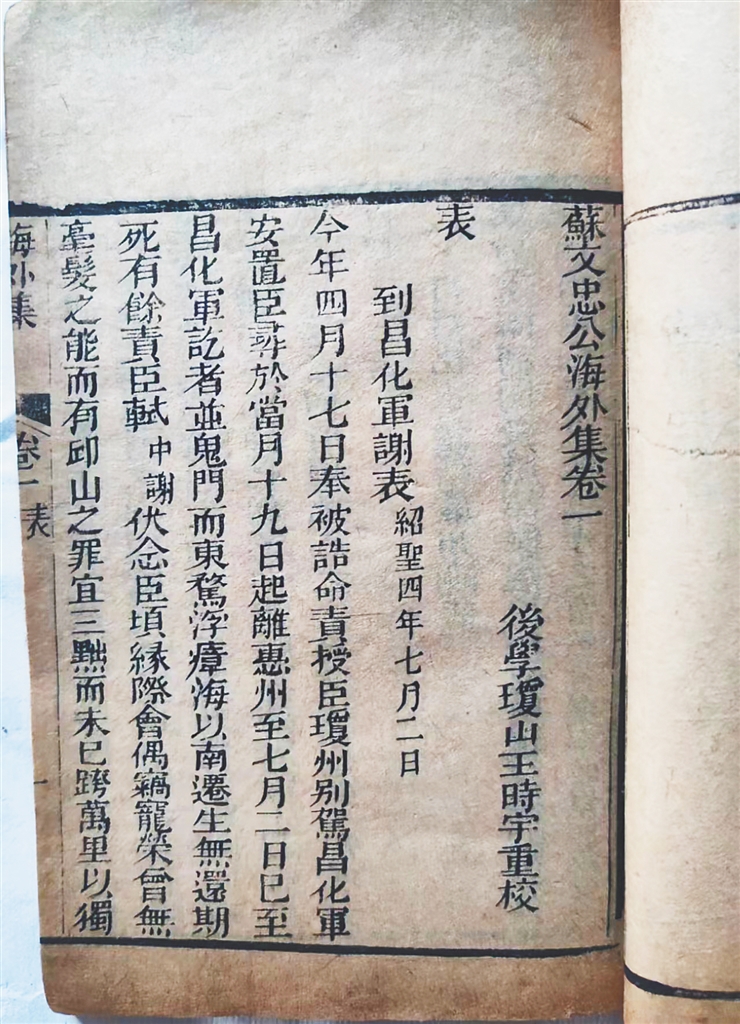 蘇文忠公海外集卷一
後學瓊山王時宇重校
表
到昌化軍謝表 紹聖四年七月二日
今年四月十七日奉被誥命責授臣瓊州别駕昌化軍
安置臣尋於當月十九日起離惠州至七月二日已至
昌化軍訖者並鬼門而東騖浮瘴海以南遷生無還期
死有餘責臣軾 中謝 伏念臣頃緣際會偶竊寵榮曾無
毫髮之能而有邱山之罪宜三黜而未已跨萬里以獨
海外集 卷一 表 一